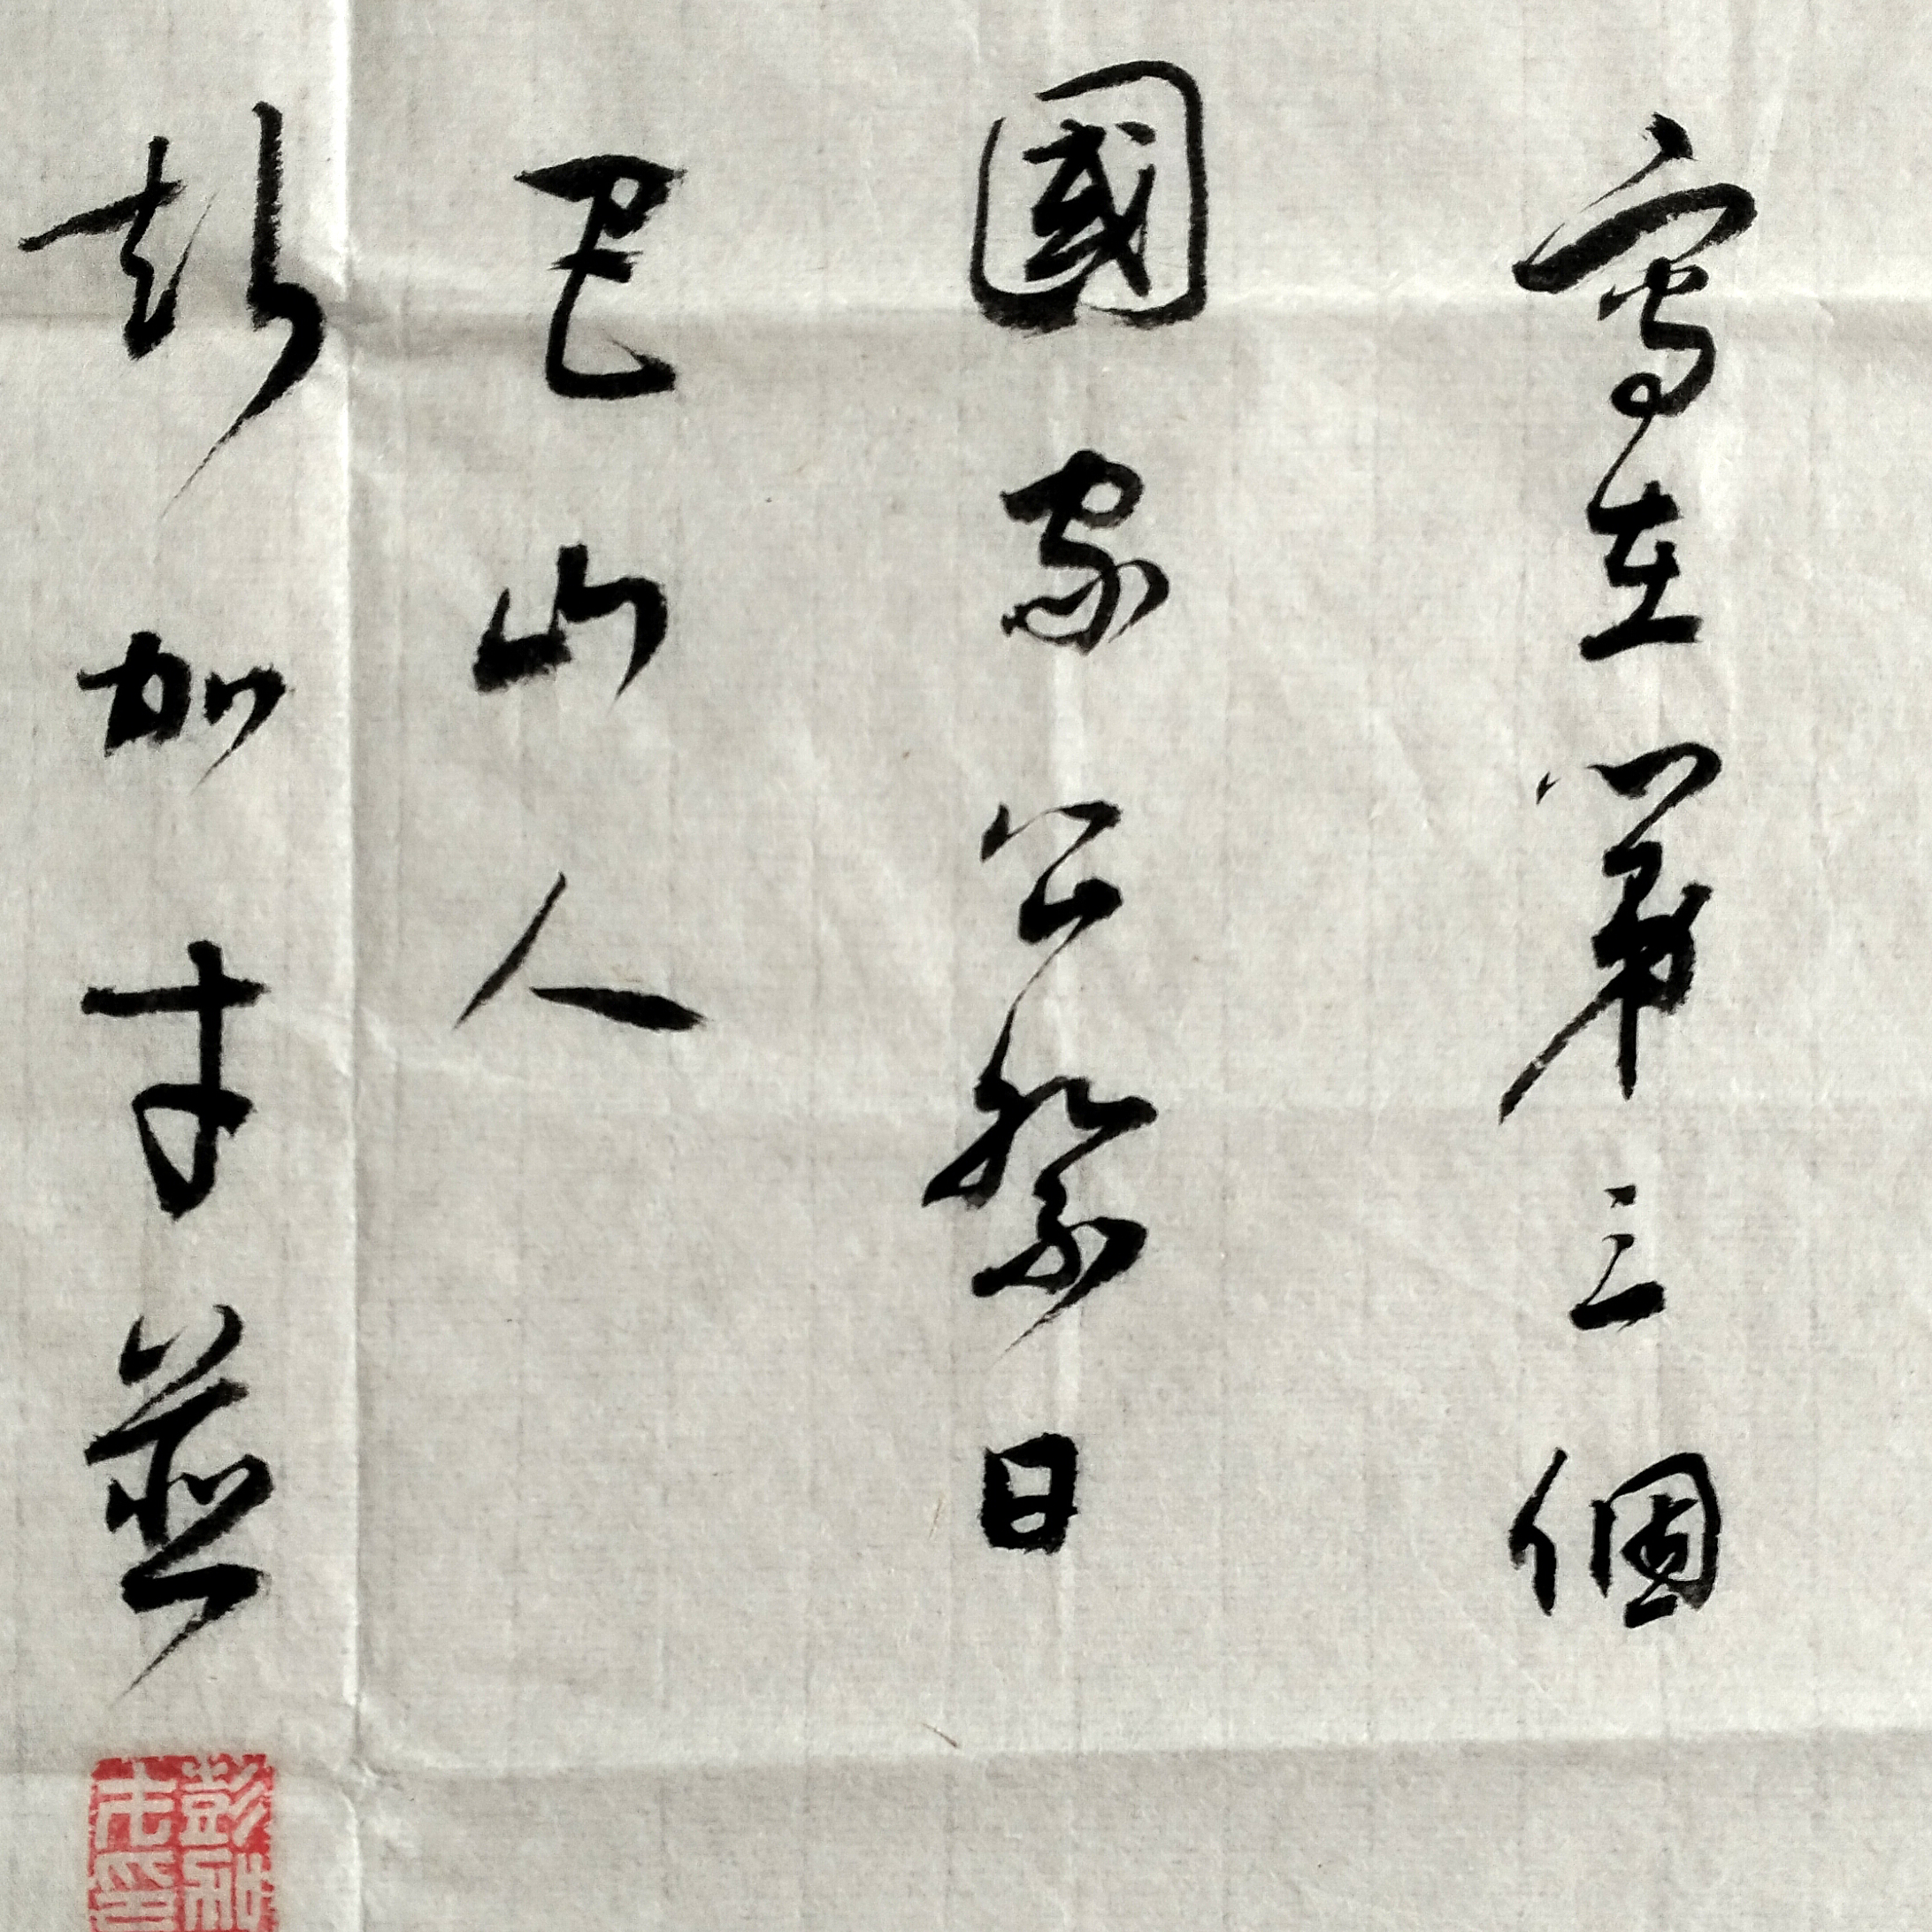 寫在第三個
國家公祭日
巴山人
彭加木並